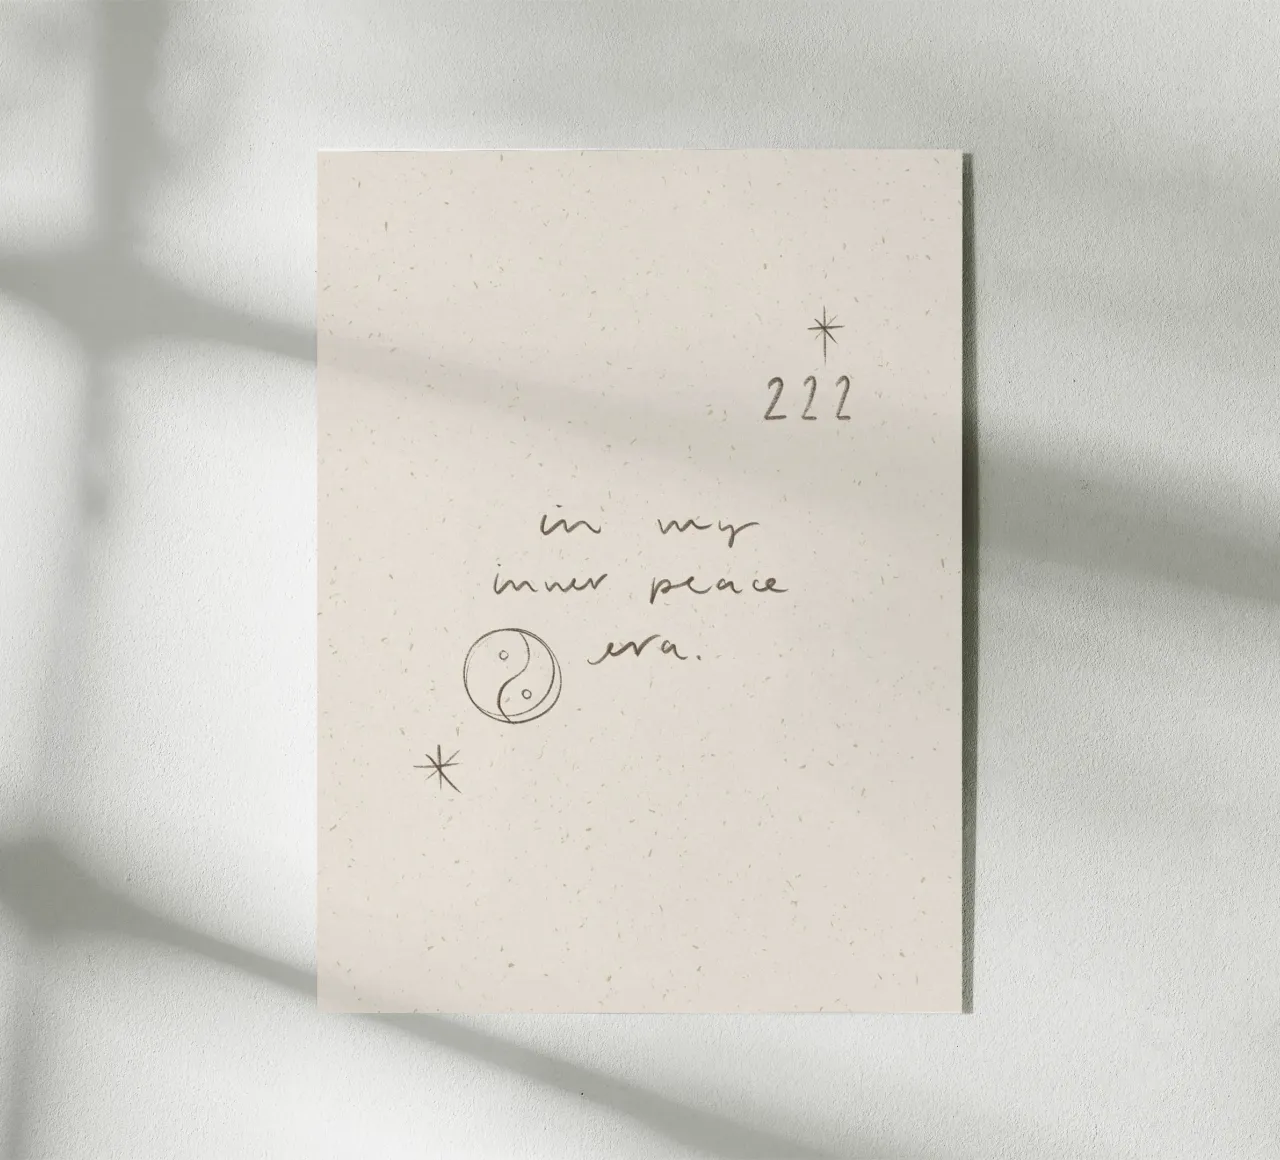 222
in my
inner peace
era.